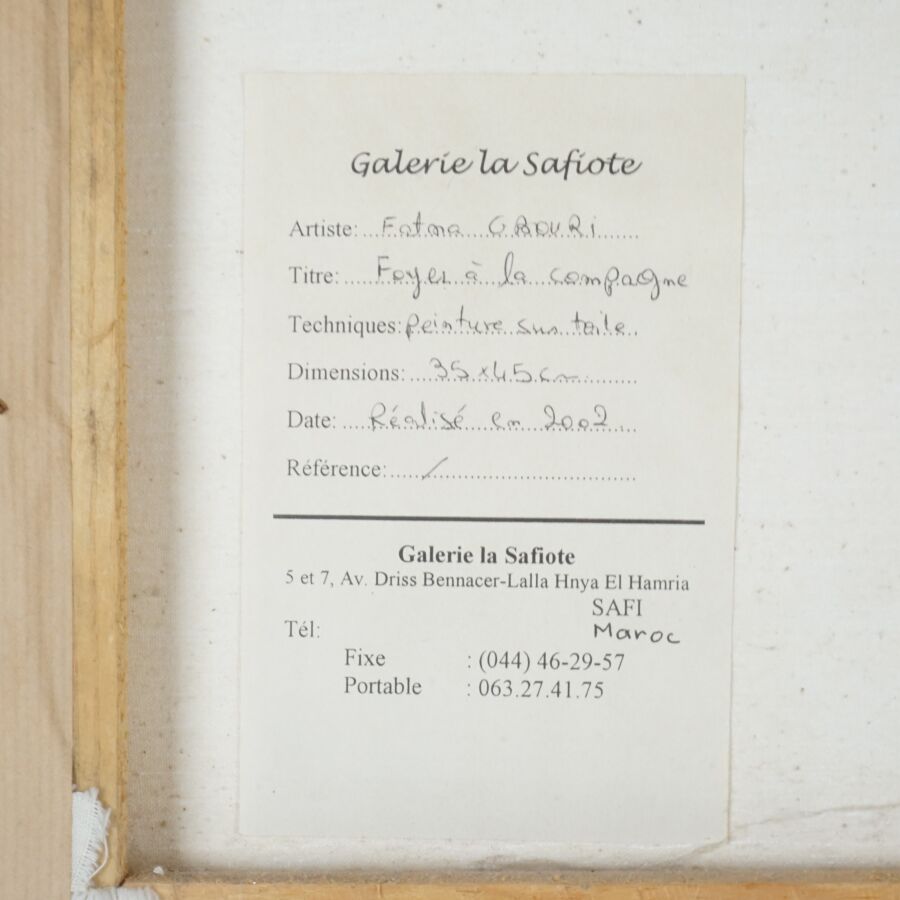 Galerie la Safiote
Artiste: Fatma GBOURI
Titre: Foyer à la compagne
Techniques: peinture sur toile
Dimensions: 35x45cm
Date: Réalisé en 2002
Référence: /
Galerie la Safiote
5 et 7, Av. Driss Bennacer-Lalla Hnya El Hamria
SAFI
Maroc
Tél:
Fixe : (044) 46-29-57
Portable : 063.27.41.75